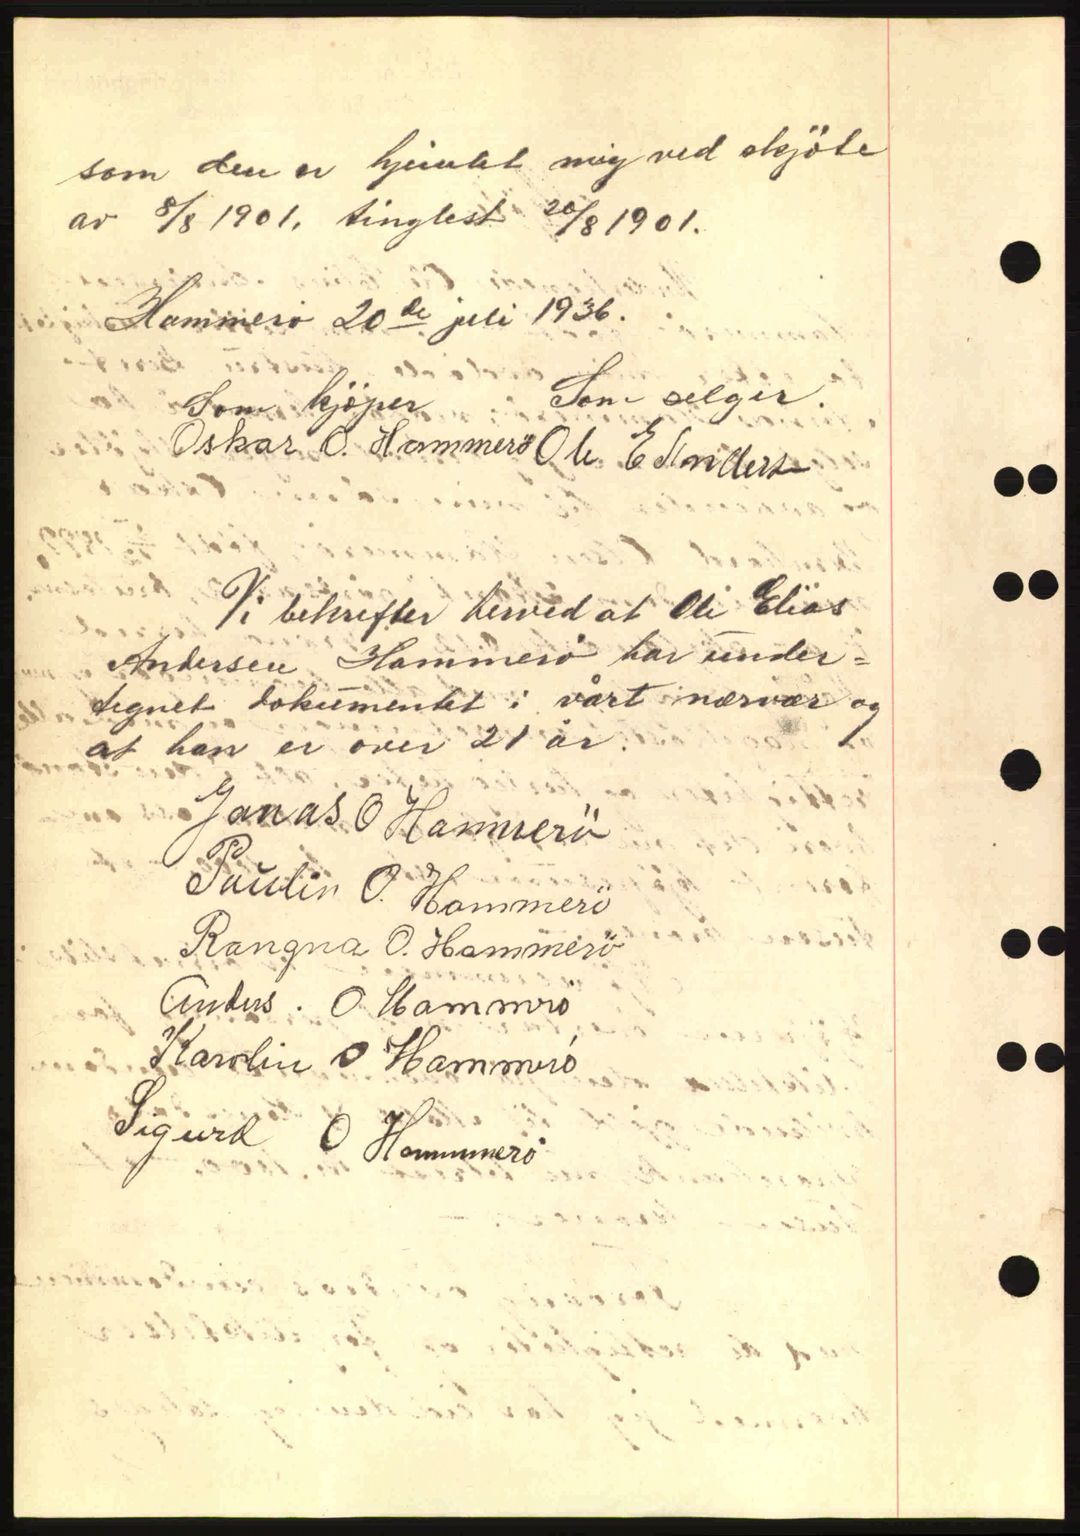 som den er hjemlet mig ved skjöte
av 8/8 1901, tinglest 20/8 1901.
Hammerö 20de juli 1936.
Som kjöper Som selger.
Oskar O. Hammerö Ole E Anders
Vi bekrefter herved at Ole Elias
Andersen Hammerö har under=
tegnet dokumentet i vårt nærvær og
at han er over 21 år.
Janas O Hammerö
Paulin O. Hammerö
Rangna O. Hammerö
Anders. O Hammerö
Karolin O Hammerö
Sigurd O Hammerö